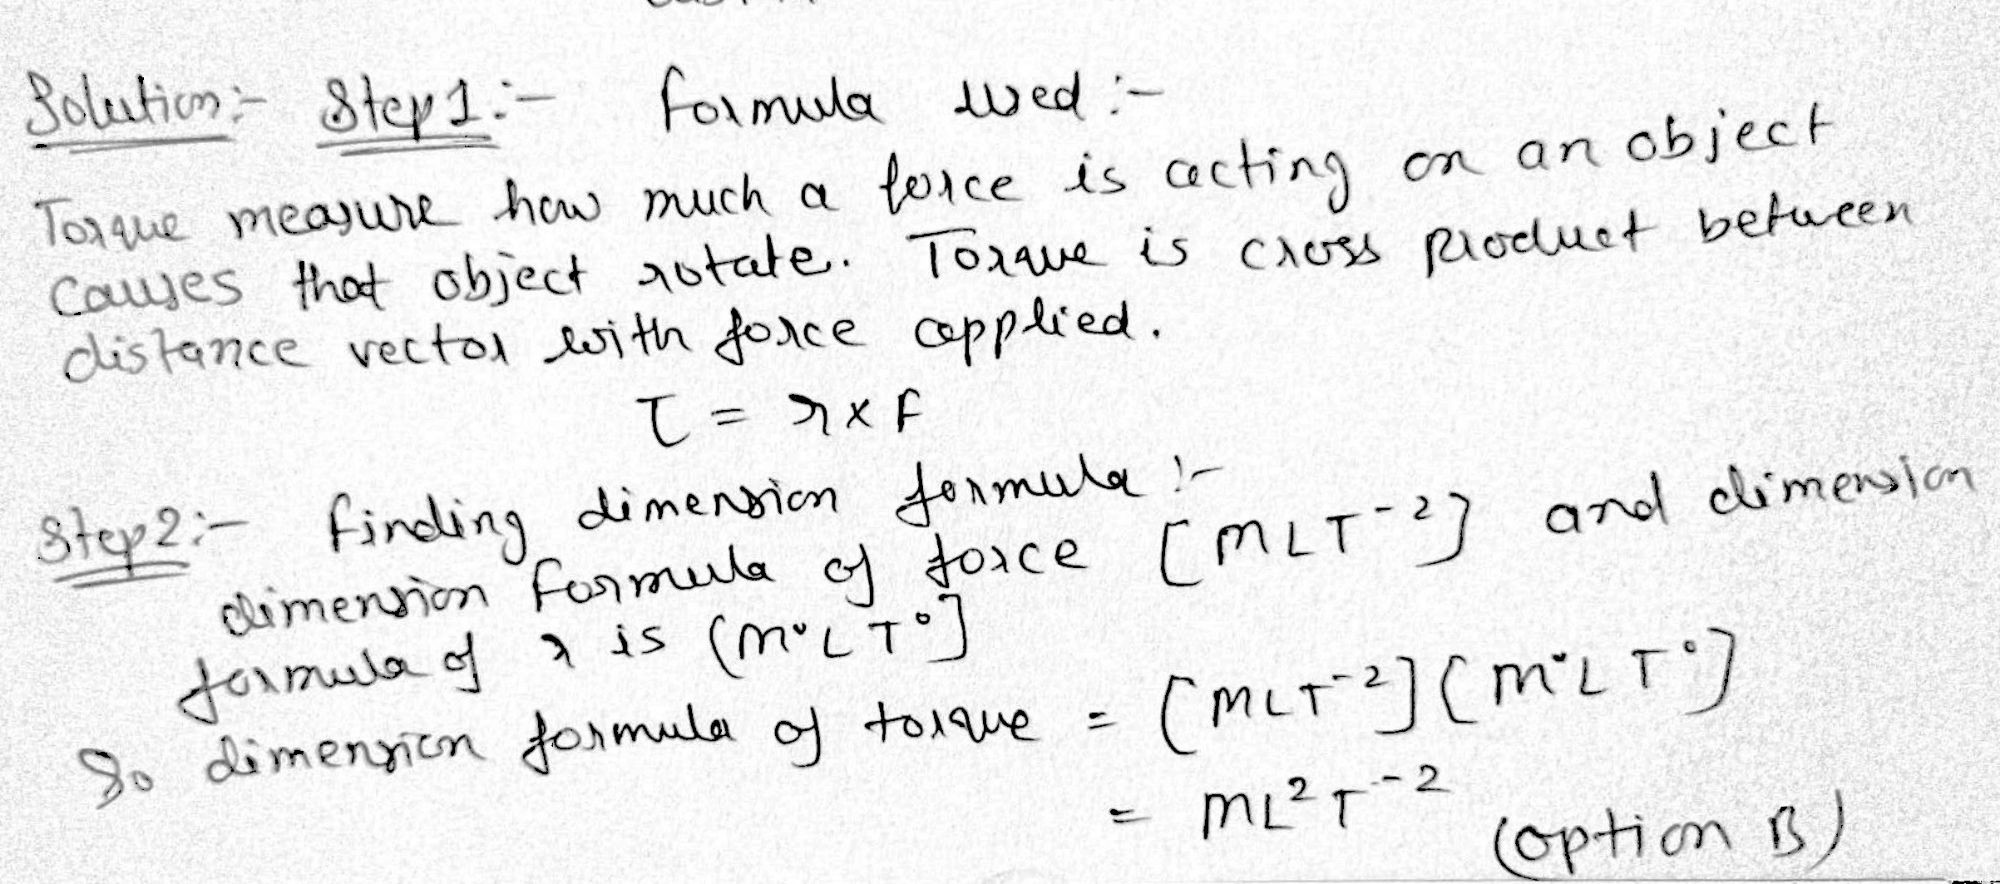 Solution:- Step1:- formula used:-
Torque measure how much a force is acting on an object
causes that object rotate. Torque is cross product between
distance vector with force applied.
τ = r×F
Step2:- finding dimension formula:-
dimension formula of force [MLT⁻²] and dimension
formula of r is [M⁰LT⁰]
So dimension formula of torque = [MLT⁻²][M⁰LT⁰]
= ML²T⁻² (option B)